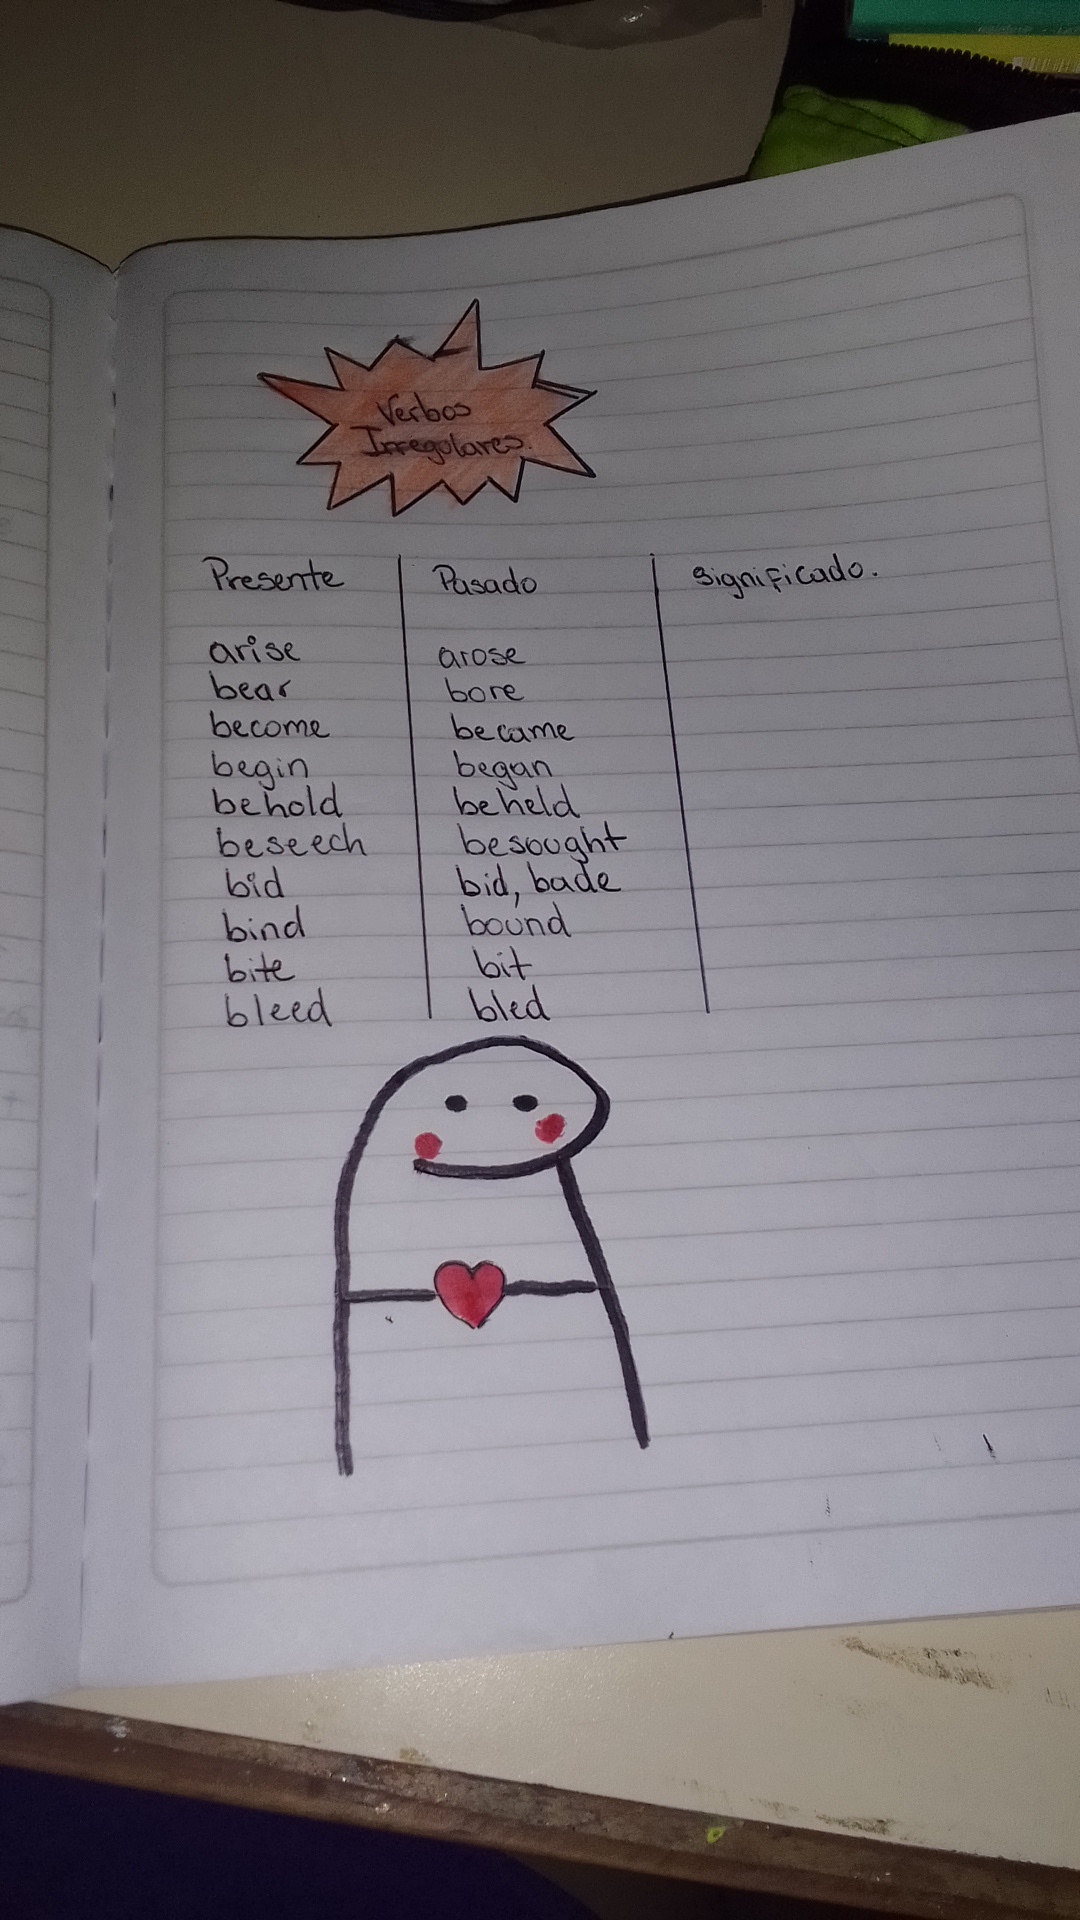 Verbos
Irregulares.
Presente Pasado Significado.
arise arose
bear bore
become became
begin began
behold beheld
beseech besought
bid bid, bade
bind bound
bite bit
bleed bled